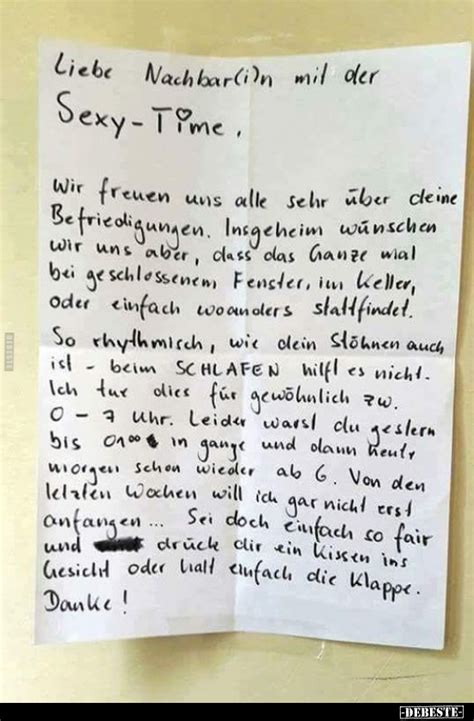 Liebe Nachbar(i)n mit der
Sexy-Time,
Wir freuen uns alle sehr über deine
Befriedigungen. Insgeheim wünschen
wir uns aber, dass das Ganze mal
bei geschlossenem Fenster, im Keller,
oder einfach woanders stattfindet.
So rhythmisch, wie dein Stöhnen auch
ist - beim SCHLAFEN hilft es nicht.
Ich tue dies für gewöhnlich zw.
0 - 7 Uhr. Leider warst du gestern
bis 01⁰⁰ in gange und dann heute
morgen schon wieder ab 6. Von den
letzten Wochen will ich gar nicht erst
anfangen... Sei doch einfach so fair
und drücke dir ein Kissen ins
Gesicht oder halt einfach die Klappe.
Danke!
-DEBESTE-